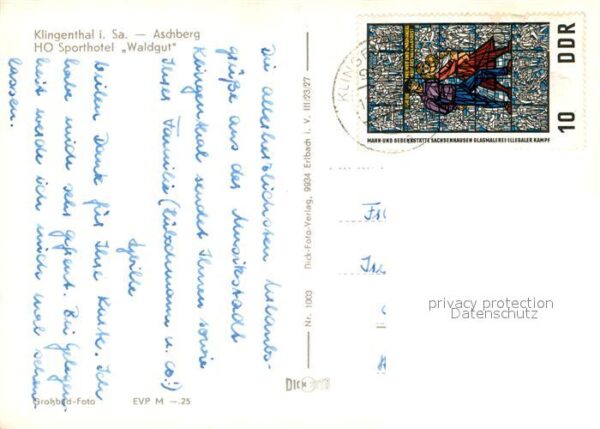 Klingenthal i. Sa. — Aschberg
HO Sporthotel „Waldgut"
Die allerherzlichsten Urlaubs-
grüße aus der Musikstadt
Klingenthal sendet Ihnen sowie
Ihrer Familie
Sybille
Vielen Dank für Ihre Karte. Ich
habe mich sehr gefreut. Bei Gelegen-
heit werde ich mich mal sehen
lassen.
Großbild-Foto EVP M —.25
Nr. 1003 Dick-Foto-Verlag, 9934 Erlbach i. V. III/23/27
DICK
KLINGE
10 DDR
MAHN-UND GEDENKSTÄTTE SACHSENHAUSEN GLASMALEREI ILLEGALER KAMPF
privacy protection
Datenschutz